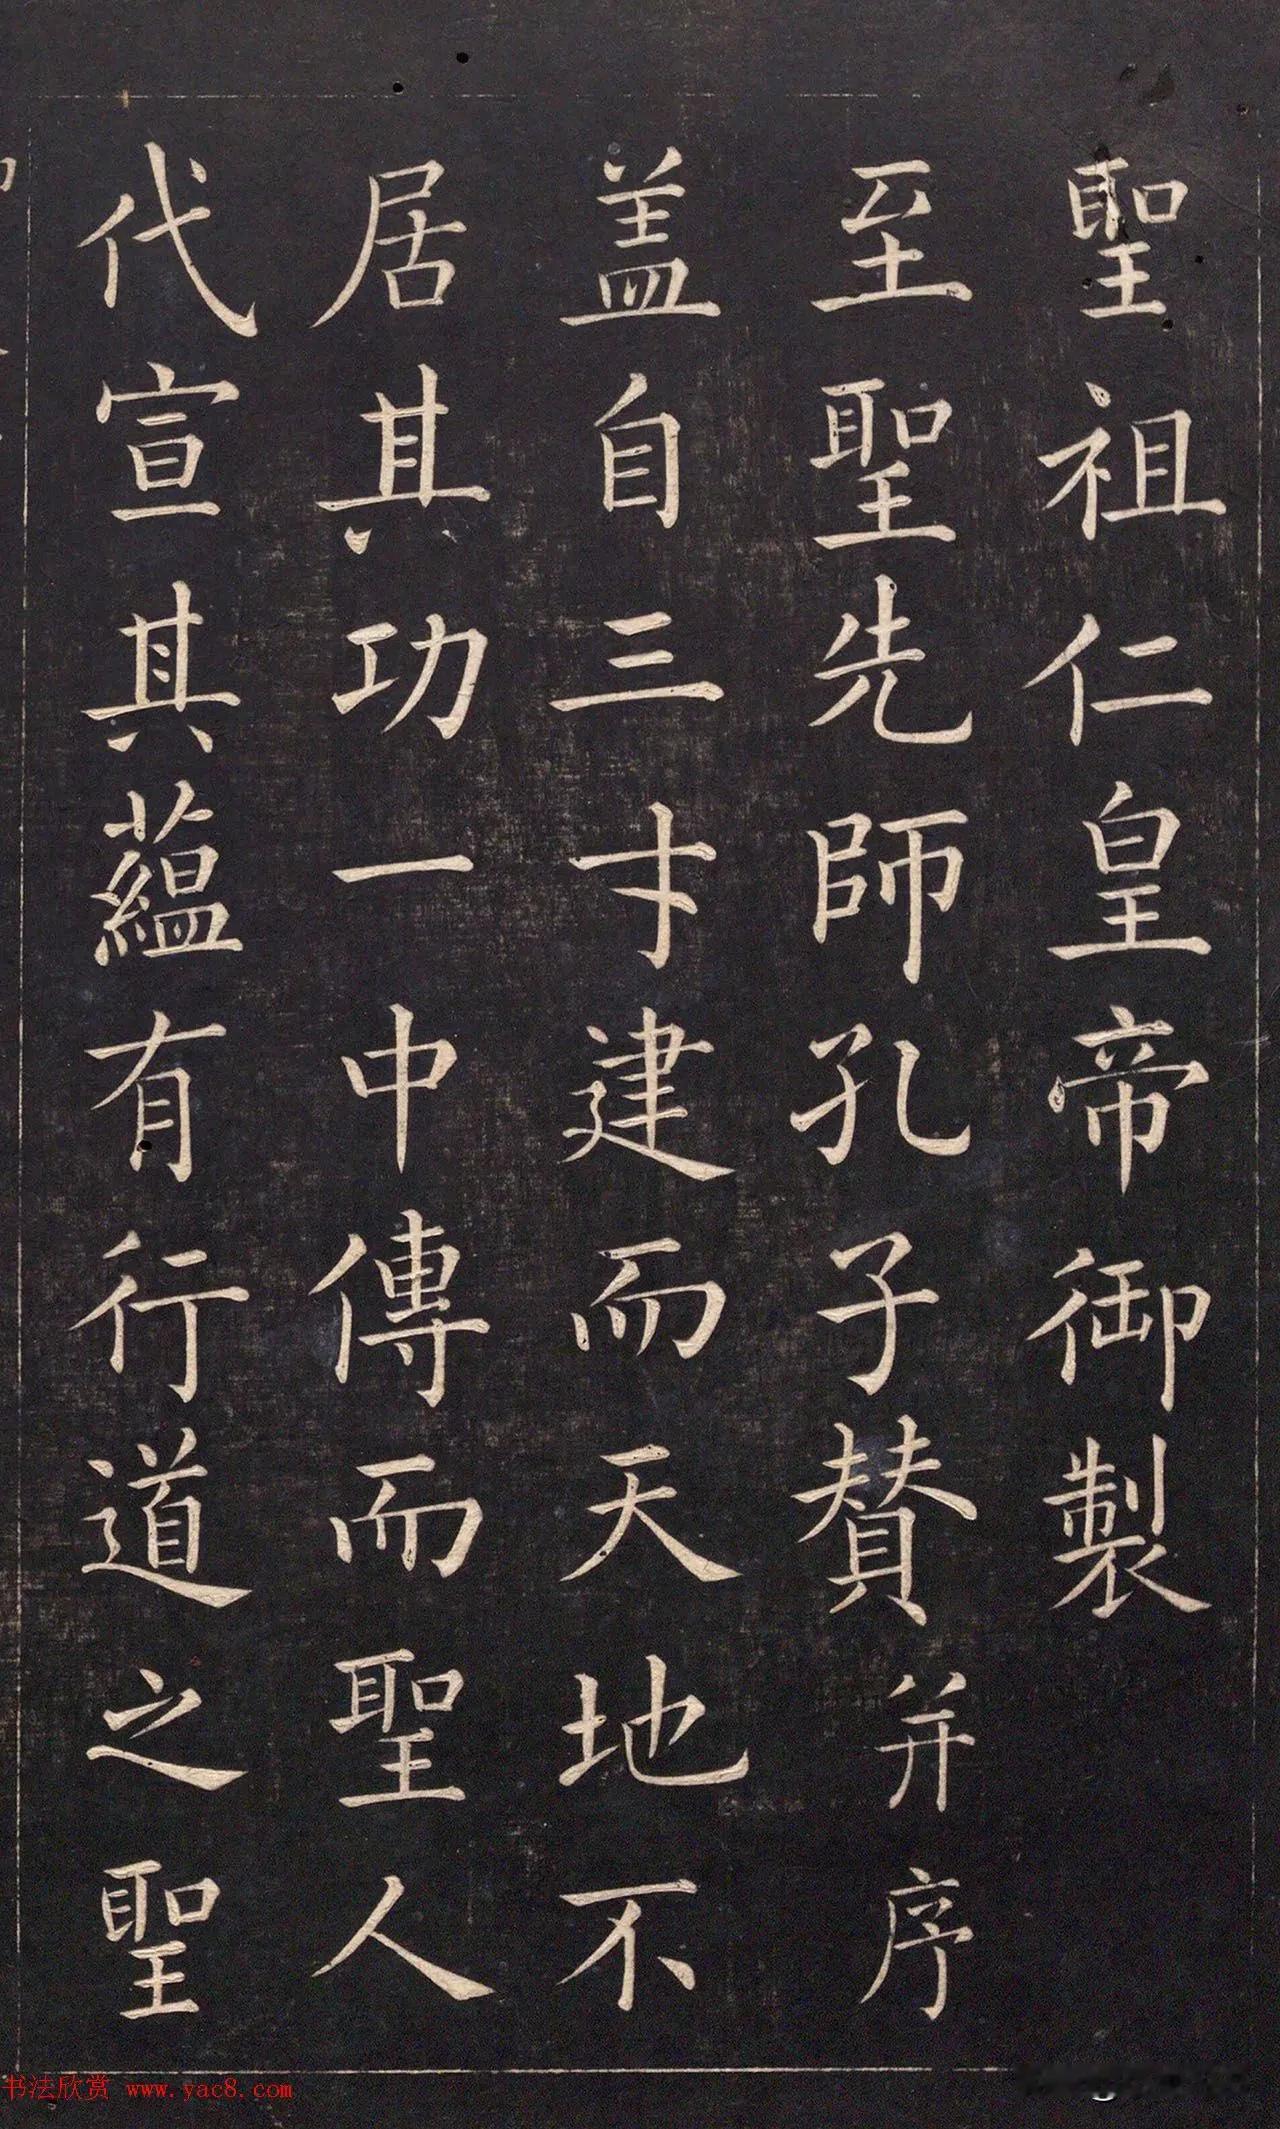 聖祖仁皇帝御製
至聖先師孔子贊并序
盖自三才建而天地不
居其功一中傳而聖人
代宣其蘊有行道之聖
书法欣赏 www.yac8.com